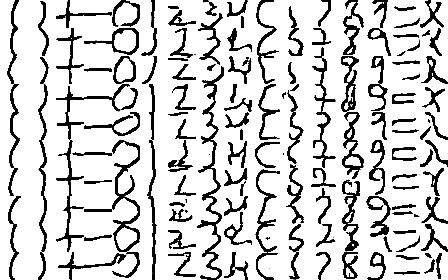 ( ) + - 0 1 2 3 4 7 8 9 = x
( ) + - 0 1 2 3 4 5 7 8 9 = x
( ) + - 0 1 2 3 4 7 8 9 = x
( ) + - 0 1 2 3 4 7 8 9 = x
( ) + - 0 1 2 3 4 5 7 8 9 = x
( ) + - 0 1 2 3 4 7 8 9 = x
( ) + - 0 1 2 3 4 5 7 8 9 = x
( ) + - 0 1 2 3 4 5 7 8 9 = x
( ) + - 0 1 2 3 4 5 7 8 9 = x
( ) + - 0 1 2 3 4 5 7 8 9 = x